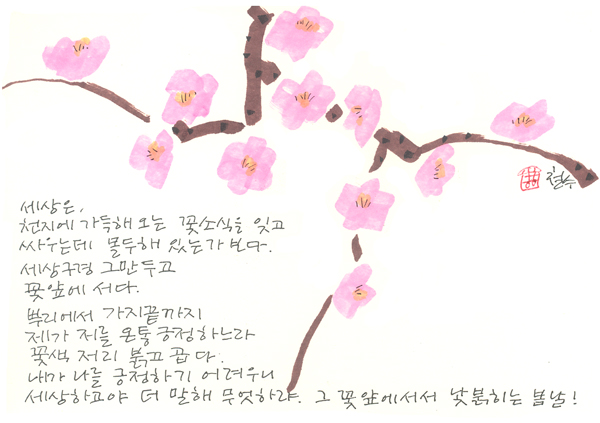 철수
세상은,
천지에 가득해 오는 꽃소식을 잊고
싸우는데 몰두해 있는가 보다.
세상구경 그만두고
꽃앞에 서다.
뿌리에서 가지끝까지
제가 저를 온통 긍정하느라
꽃색 저리 붉고 곱다.
내가 나를 긍정하기 어려우니
세상하고야 더 말해 무엇하랴. 그 꽃앞에서서 낯붉히는 봄날!